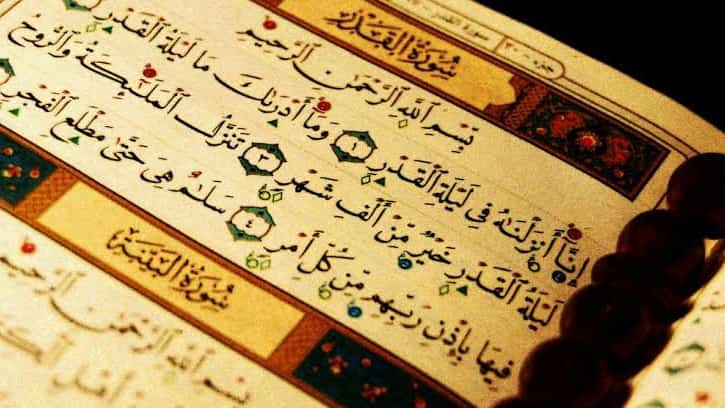 جزء ٣٠ سورة القدر
سُورَةُ القَدْرِ
بِسْمِ ٱللَّهِ ٱلرَّحْمَٰنِ ٱلرَّحِيمِ
إِنَّآ أَنزَلْنَٰهُ فِى لَيْلَةِ ٱلْقَدْرِ ١ وَمَآ أَدْرَىٰكَ مَا لَيْلَةُ ٱلْقَدْرِ
لَيْلَةُ ٱلْقَدْرِ خَيْرٌ مِّنْ أَلْفِ شَهْرٍ ٣ تَنَزَّلُ ٱلْمَلَٰٓئِكَةُ وَٱلرُّوحُ
فِيهَا بِإِذْنِ رَبِّهِم مِّن كُلِّ أَمْرٍ ٤ سَلَٰمٌ هِىَ حَتَّىٰ مَطْلَعِ ٱلْفَجْرِ
سُورَةُ البَيِّنَةِ
بِسْمِ ٱللَّهِ ٱلرَّحْمَٰنِ ٱلرَّحِيمِ
أَهْلِ